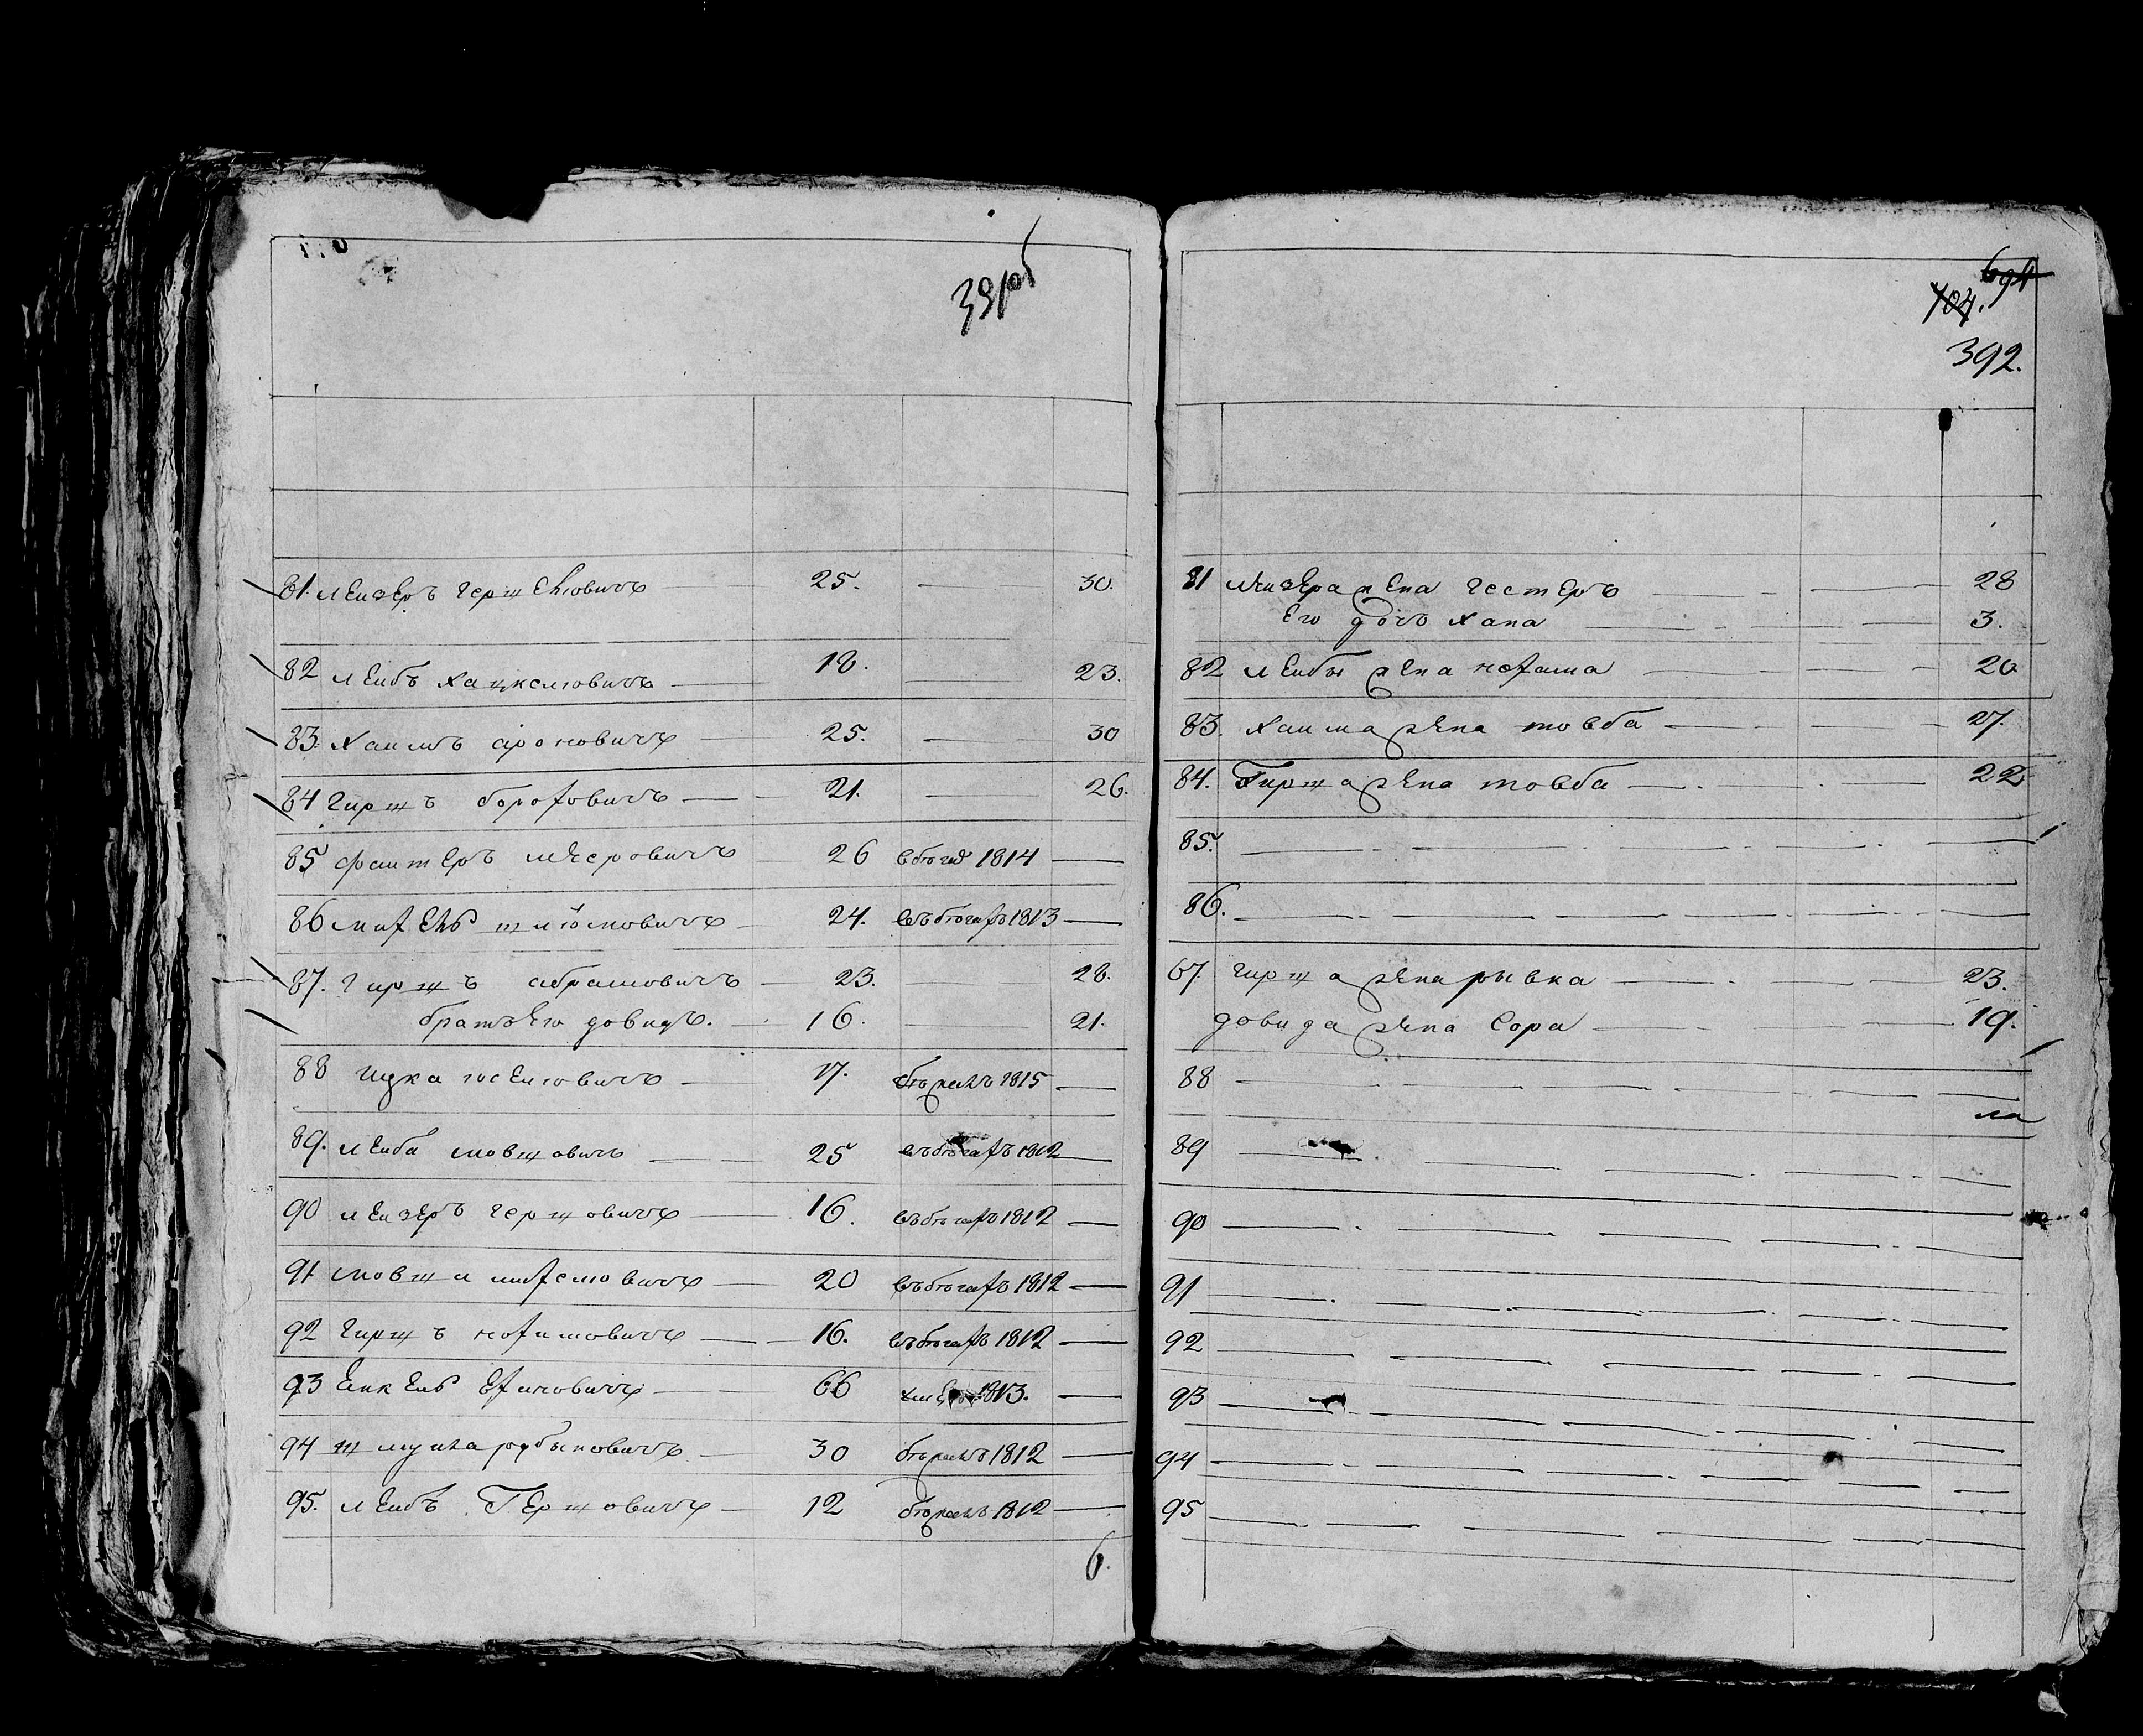 391об
81. Леизеръ Гершковичъ 25. — 30.
82 Леибъ Хацкелювичъ 18. — 23.
83. Хаимъ Ароновичъ 25. — 30
84 Гиршъ Бороховичъ 21. — 26.
85 Фаитеръ Мееровичъ 26 1814 —
86 Михель Шлiомовичъ 24. въ бѣгахъ 1813 —
87. Гиршъ Абрамовичъ 23. — 28.
братъ Его Довидъ. 16. — 21.
88 Ицка Иосеиовичъ 17. 1815 —
89. Леиба Мовшовичъ 25 въ бѣгахъ 1812 —
90 Леизеръ Гершовичъ 16. въ бѣгахъ 1812 —
91 Мовша Михелювичъ 20 въ бѣгахъ 1812 —
92 Гиршъ Нохимовичъ 16. въ бѣгахъ 1812 —
93 Енкель Ехиловичъ 66 1813. —
94 Шмуила Рубиновичъ 30 1812 —
95. Леибъ Гершовичъ 12 1812 —
6.
694
704.
392.
81 Леизера жена Гестеръ 28
Его дочъ Хана 3.
82 Леибы жена Нехама 20
83. Хаима жена Товба 27.
84. Гирша жена Товба 22
85.
86.
87 Гирша жена Рывка 23.
Довида жена Сора 19.
88
ла
89
90
91
92
93
94
95